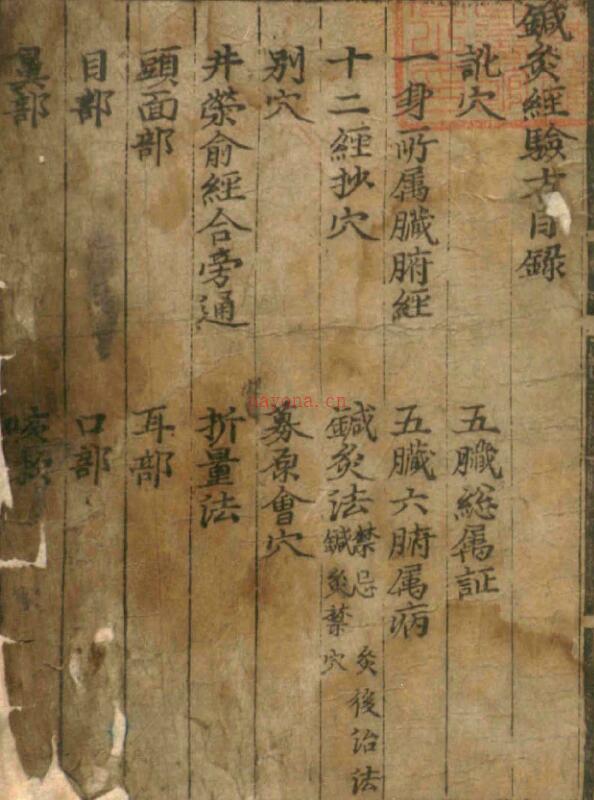 鍼灸經驗方目錄
訛穴 五臟總属証
一身所属臟腑經 五臟六腑属病
十二經抄穴 鍼灸法 禁忌 灸後治法 鍼灸禁穴
別穴 募原會穴
井榮俞經合旁通 折量法
頭面部 耳部
目部 口部
鼻部 咳嗽
nayona.cn